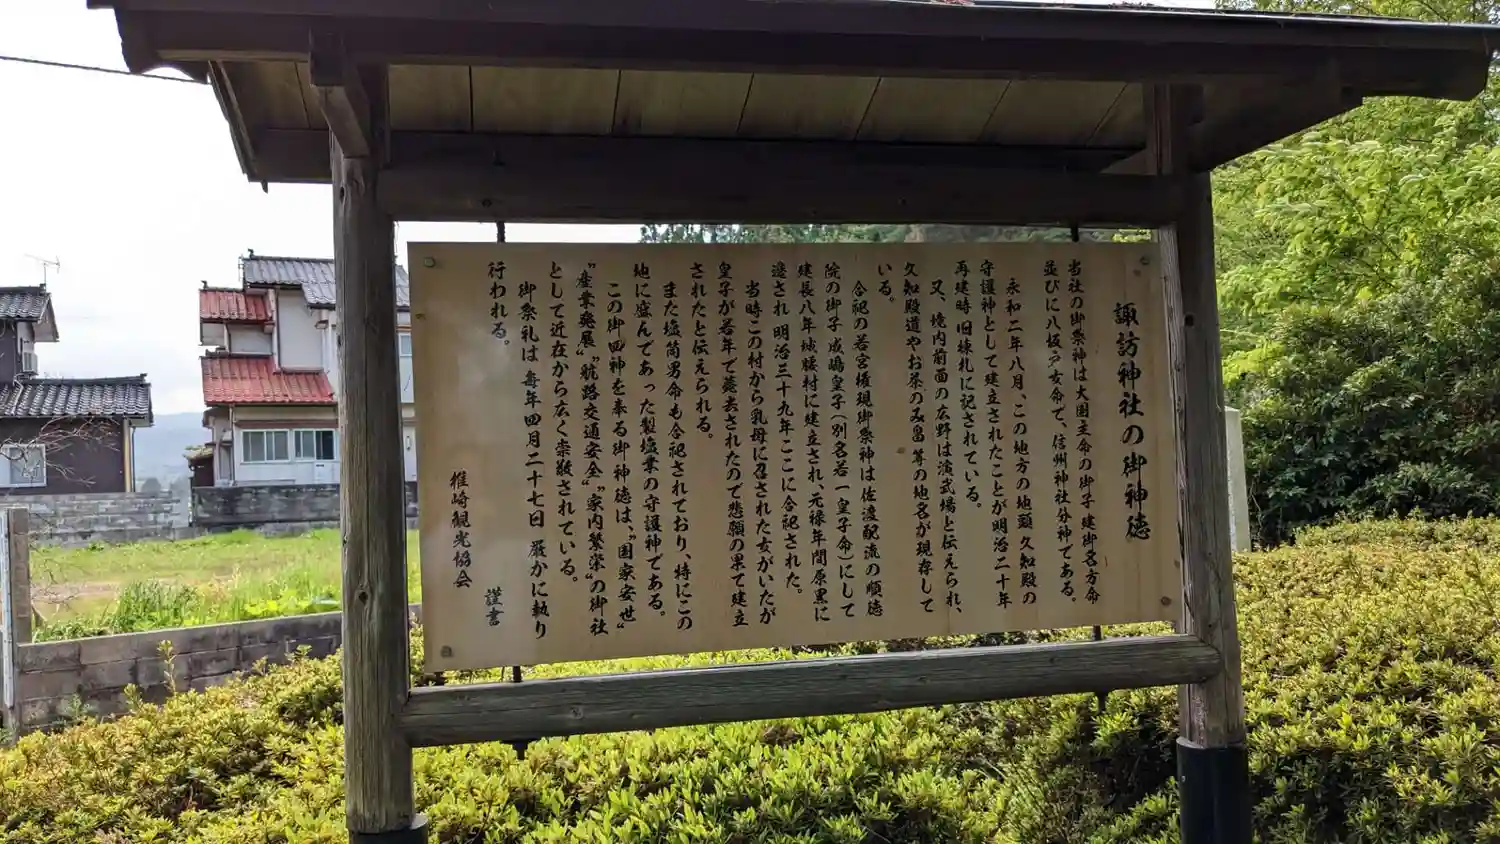 諏訪神社の御神徳
当社の御祭神は大国主命の御子 建御名方命
並びに八坂戸女命で、信州神社分神である。
永和二年八月、この地方の地頭 久知殿の
守護神として建立されたことが明治二十年
再建時 旧棟札に記されている。
又、境内前面の広野は演武場と伝えられ、
久知殿道やお茶の畠等の地名が現存して
いる。
合祀の若宮権現御祭神は佐渡配流の順徳
院の御子 成嶋皇子(別名若一皇子命)にして
建長八年城腰村に建立され、元禄年間原黒に
遷され 明治三十九年ここに合祀された。
当時この村から乳母に召された女がいたが
皇子が若年で薨去されたので悲願の果て建立
されたと伝えられる。
また塩筒男命も合祀されており、特にこの
地に盛んであった製塩業の守護神である。
この御四神を奉る御神徳は、"国家安世"
"産業発展" "航路交通安全" "家内繁栄" の御社
として近在から広く崇敬されている。
御祭礼は 毎年四月二十七日 厳かに執り
行われる。
椎崎観光協会
謹書